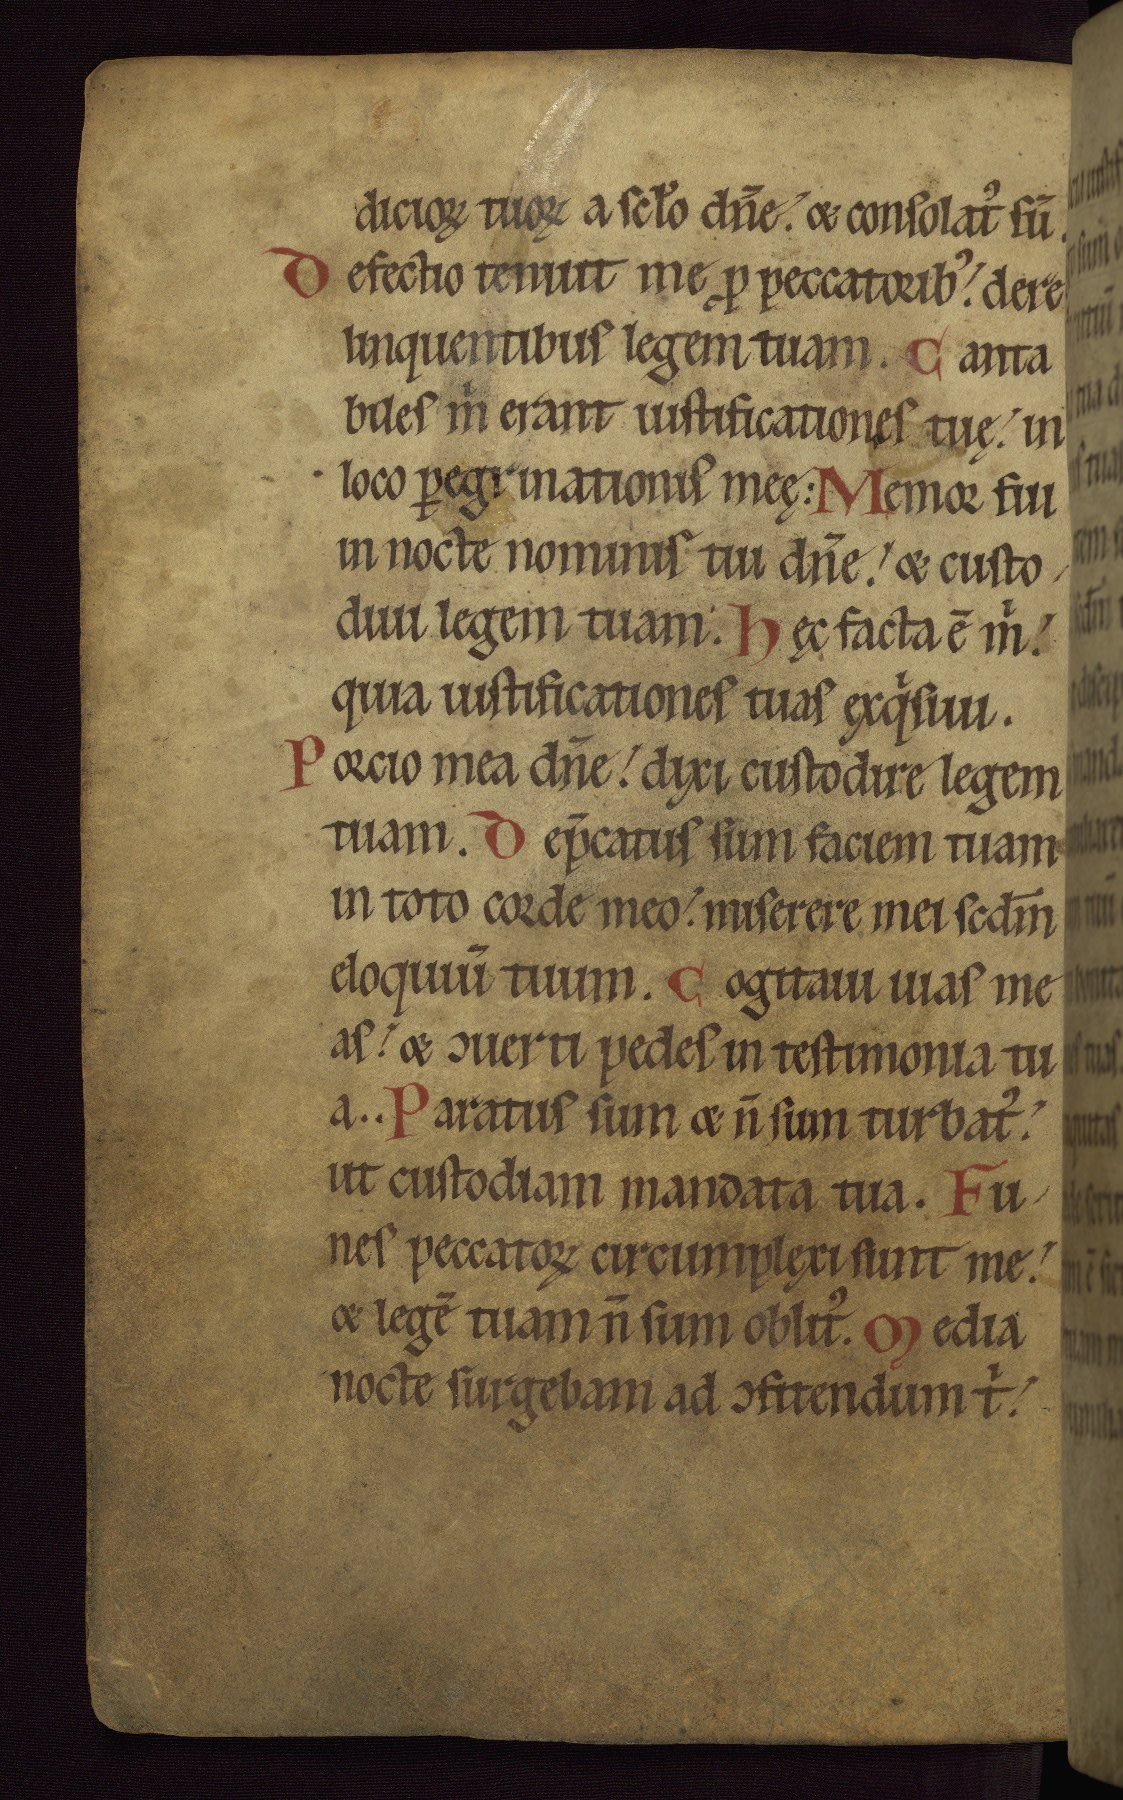 dicioꝝ tuoꝝ a sclo dn̄e! & consolatꝰ sū.
Defectio tenuit me ꝓ peccatoribꝰ! dere
linquentibus legem tuam. Canta
biles m̄ erant iustificationes tuę! in
loco ꝑegrinationis meę: Memor fui
in nocte nominis tui dn̄e! & custo
diui legem tuam. Hęc facta ē m̄!
quia iustificationes tuas exqͥsiui.
Porcio mea dn̄e! dixi custodire legem
tuam. Dep̄catus sum faciem tuam
in toto corde meo! miserere mei scdm̄
eloquiū tuum. Cogitaui uias me
as! & ↄuerti pedes in testimonia tu
a.. Paratus sum & n̄ sum turbatꝰ!
ut custodiam mandata tua. Fu
nes peccatoꝝ circumplexi sunt me!
& legē tuam n̄ sum oblitꝰ. Media
nocte surgebam ad ↄfitendum tͥ!